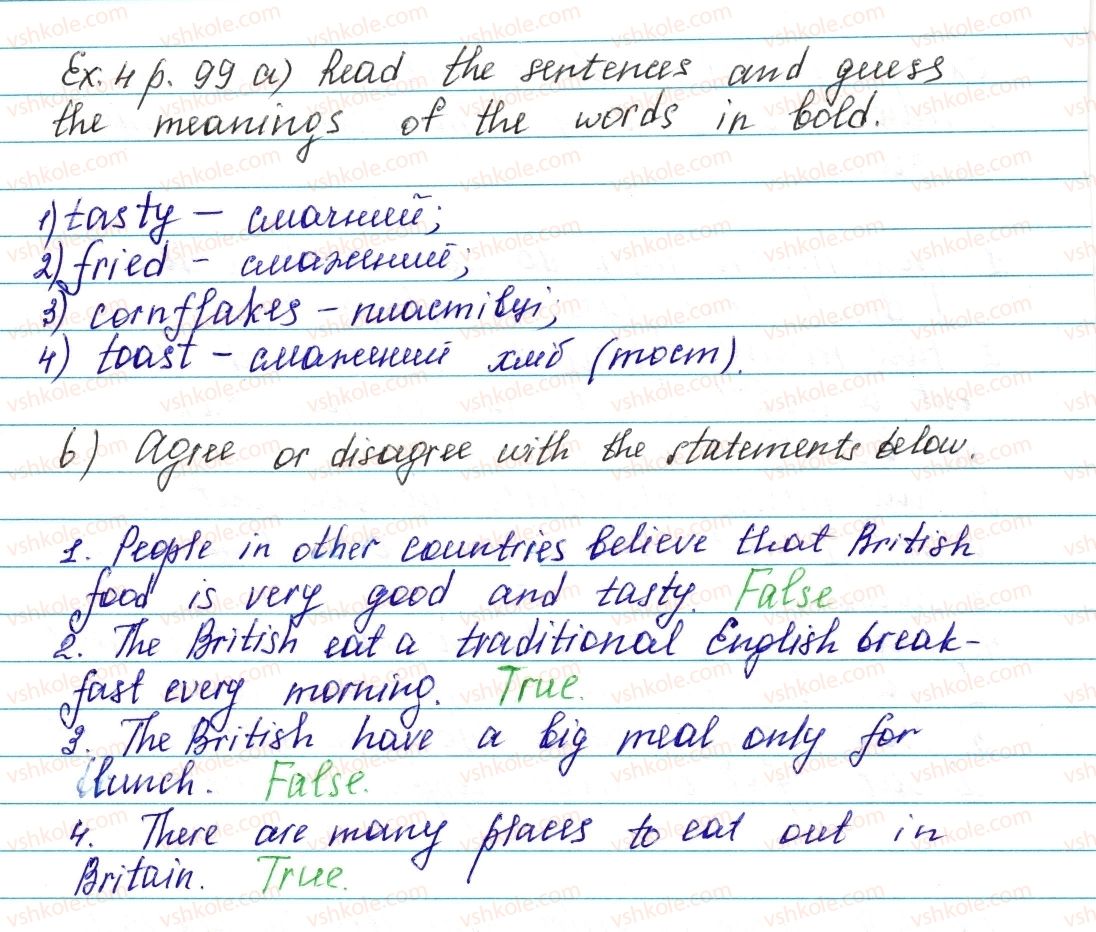 Ex. 4 p. 99 a) Read the sentences and guess
the meanings of the words in bold.
1) tasty – смачний;
2) fried – смажений;
3) cornflakes – пластівці;
4) toast – смажений хліб (тост).
b) Agree or disagree with the statements below.
1. People in other countries believe that British
food is very good and tasty. False
2. The British eat a traditional English break-
fast every morning. True.
3. The British have a big meal only for
lunch. False.
4. There are many places to eat out in
Britain. True.